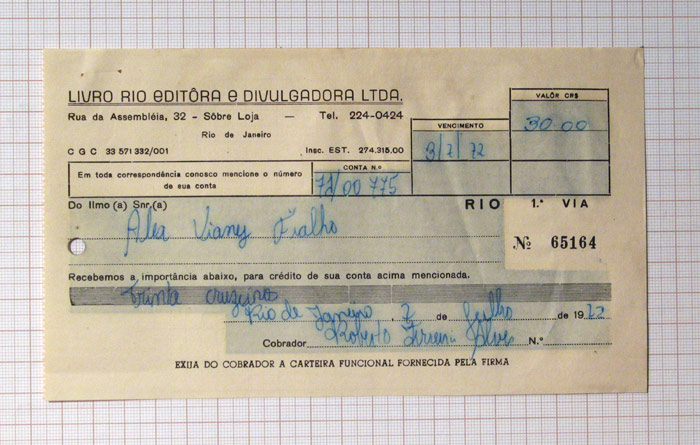 LIVRO RIO EDITÔRA E DIVULGADORA LTDA.
Rua da Assembléia, 32 - Sôbre Loja — Tel. 224-0424
Rio de Janeiro
C G C 33 571 332/001 Insc. EST. 274.315.00
VENCIMENTO
3/7/72
VALÔR CR$
30.00
Em toda correspondência conosco mencione o número
de sua conta
CONTA N.º
72/00 775
Do Ilmo (a) Snr.(a)
RIO 1.ª VIA
Alex Viany Fialho
Nº 65164
Recebemos a importância abaixo, para crédito de sua conta acima mencionada.
Trinta cruzeiros
Rio de Janeiro, 2 de Julho de 1972
Cobrador Roberto Alves N.º
EXIJA DO COBRADOR A CARTEIRA FUNCIONAL FORNECIDA PELA FIRMA